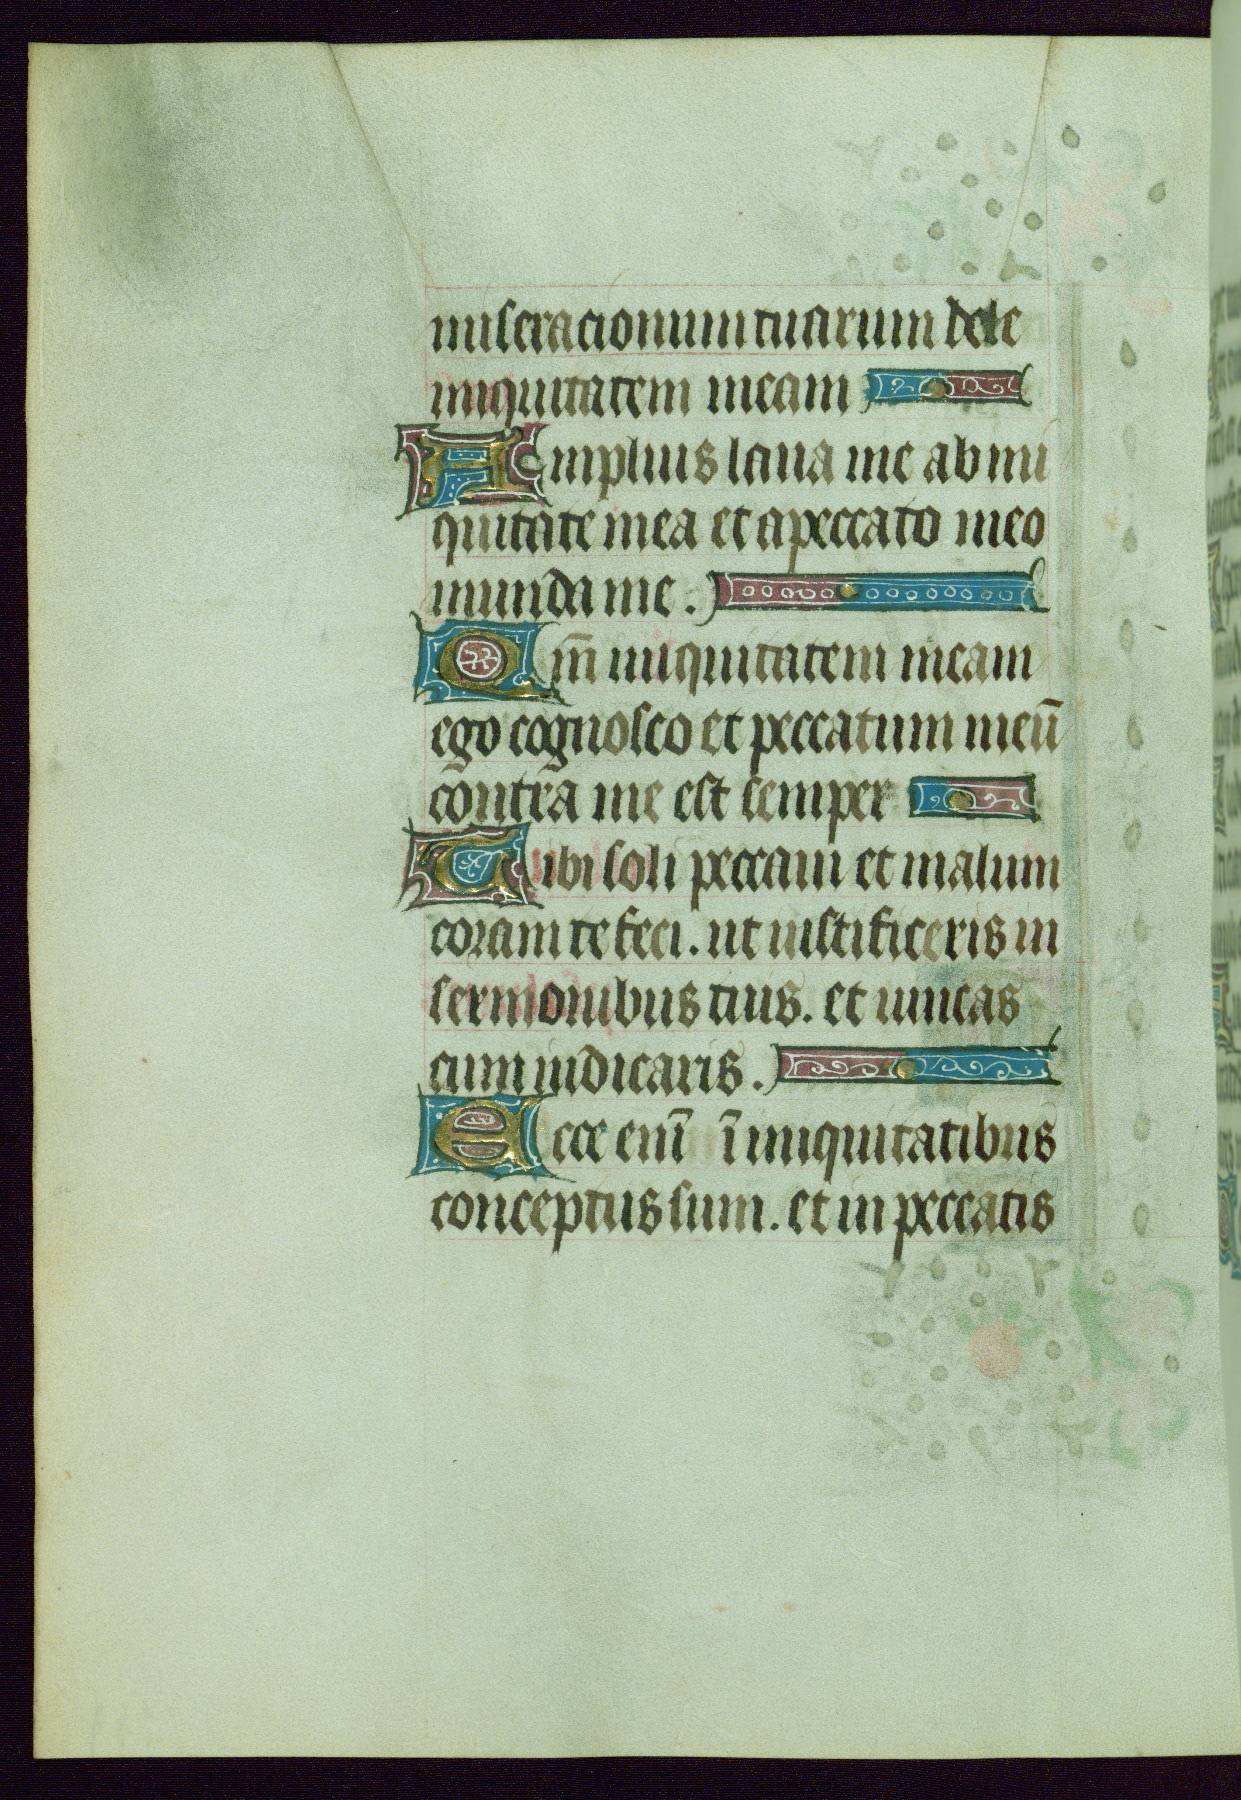 miseracionum tuarum dele
iniquitatem meam
Amplius laua me ab ini
quitate mea et a peccato meo
munda me.
Qm̄ iniquitatem meam
ego cognosco et peccatum meū
contra me est semper
Tibi soli peccaui et malum
coram te feci. ut iustificeris in
sermonibus tuis. et uincas
cum iudicaris.
Ecce eni̅ i̅ iniquitatibus
conceptus sum. et in peccatis